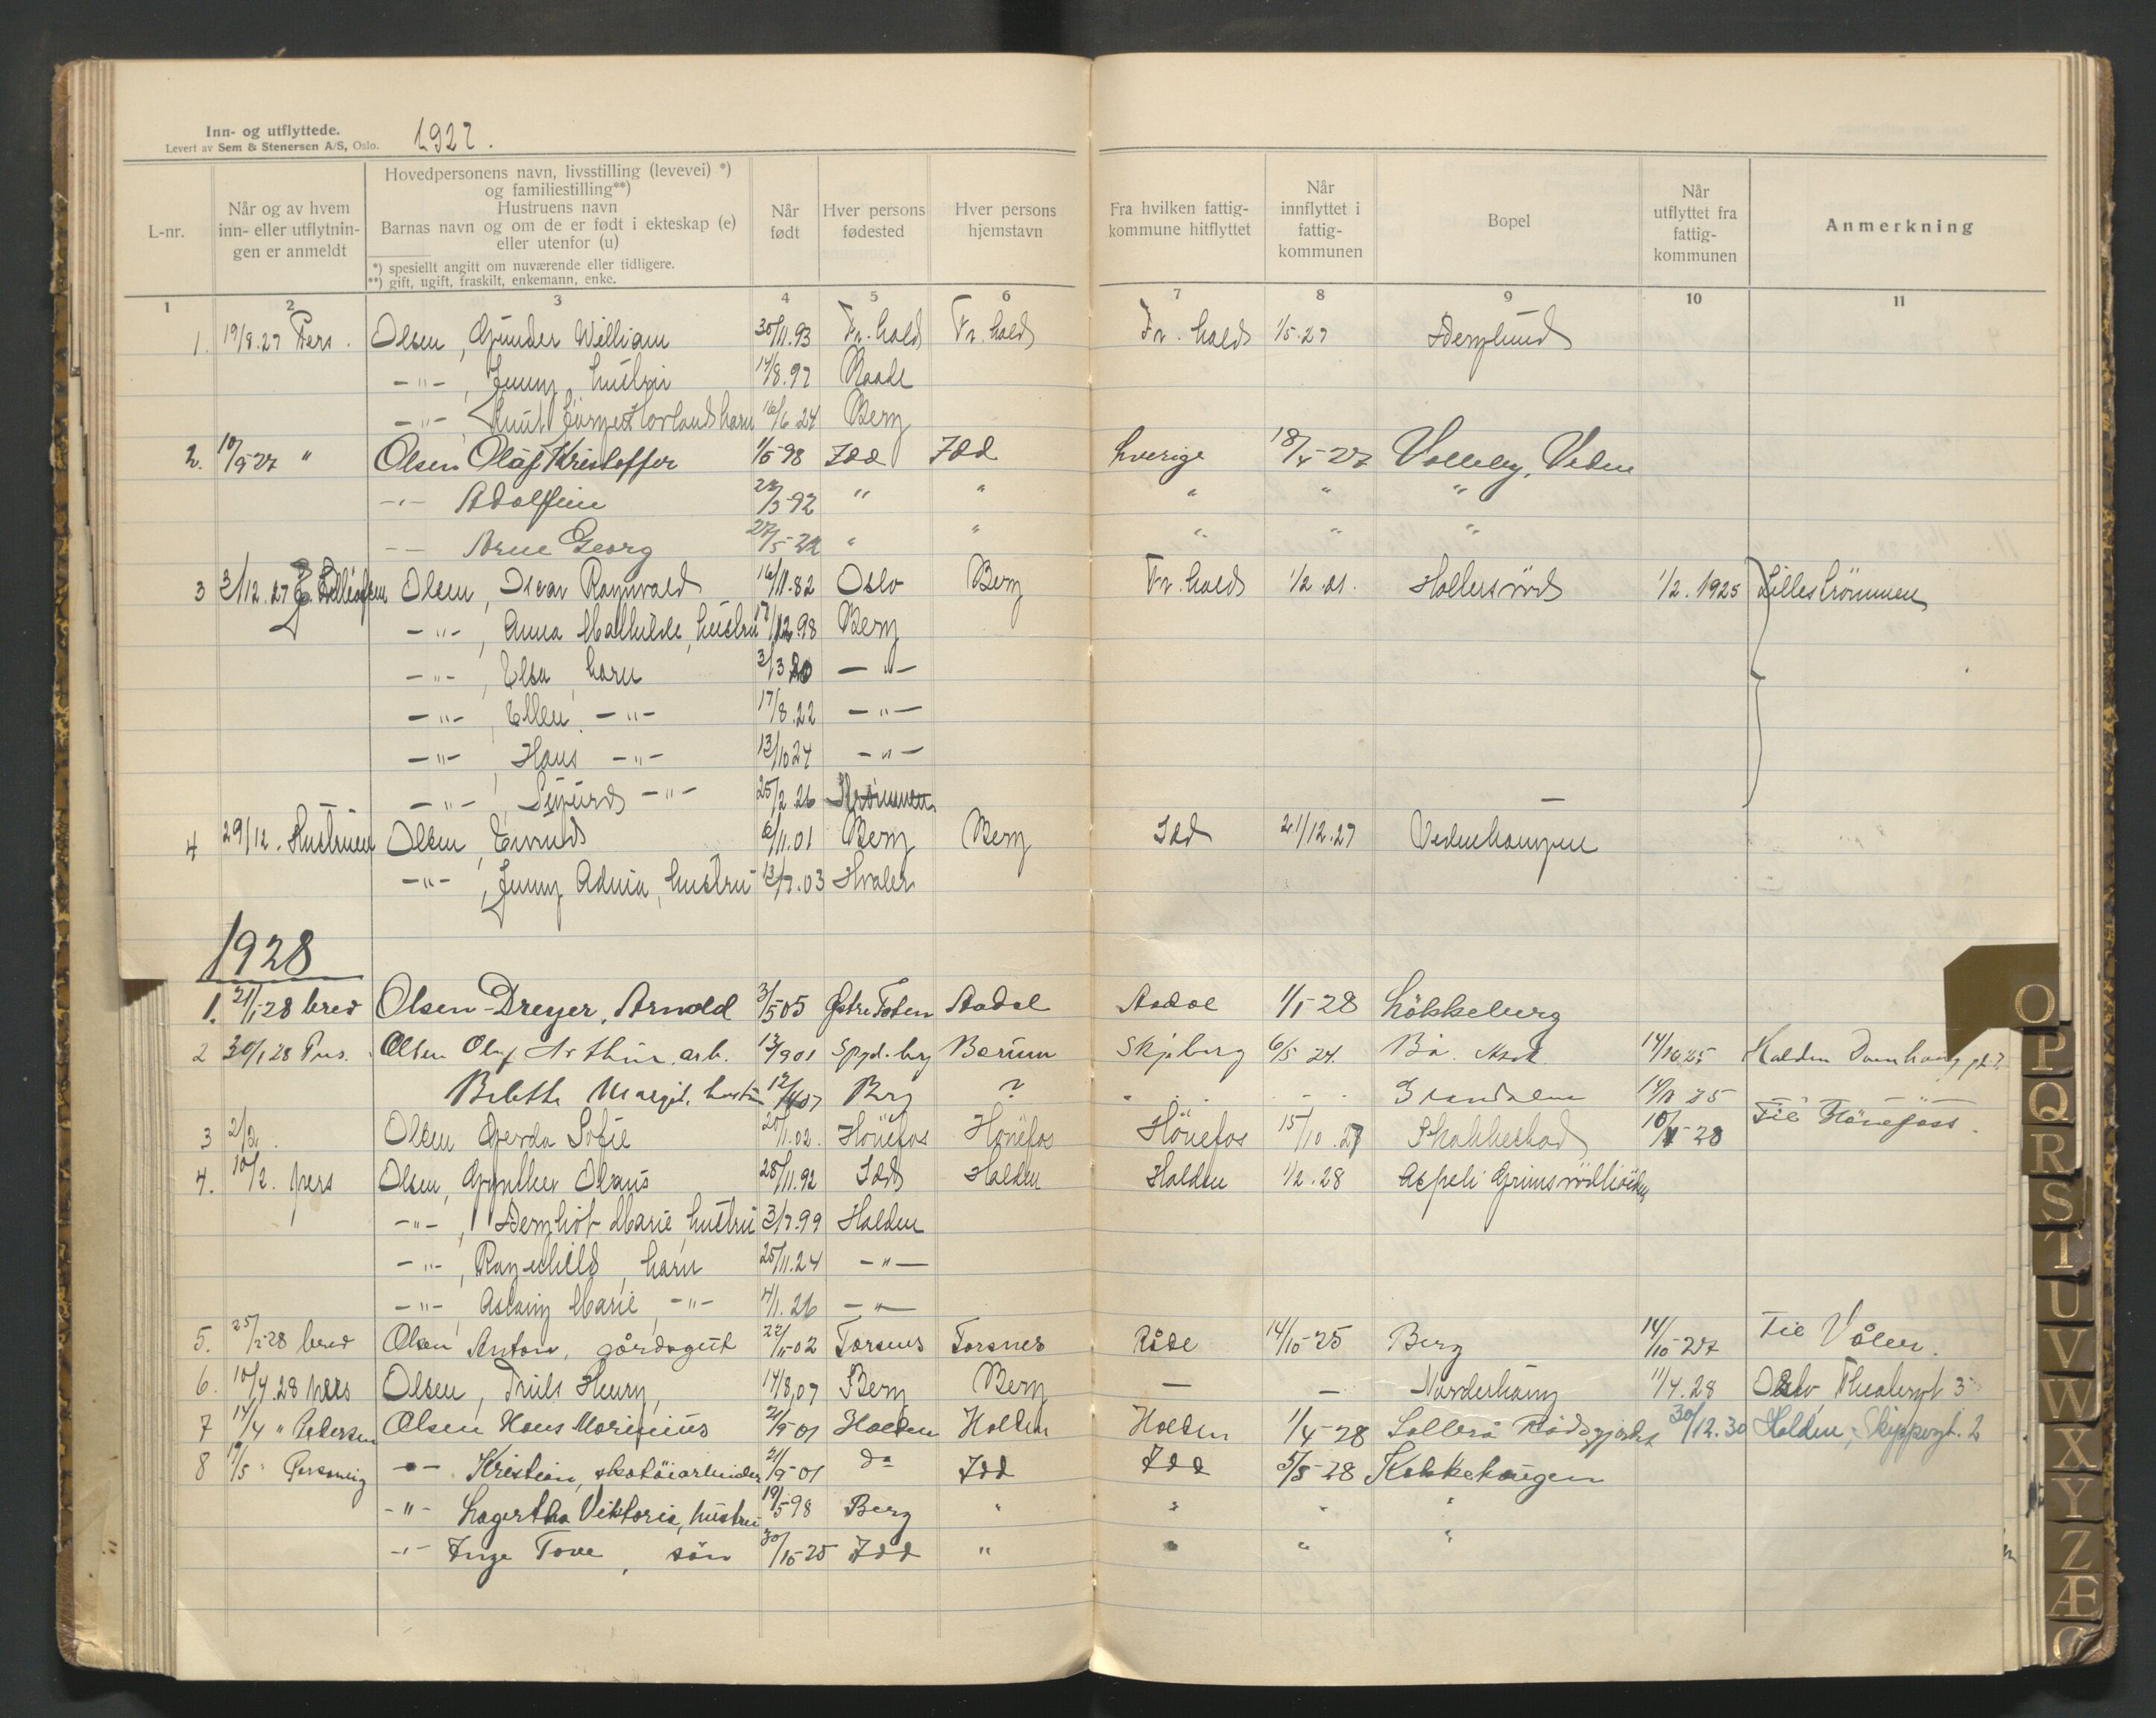 Inn- og utflyttede.
Levert av Sem & Stenersen A/S, Oslo.
1927.
L-nr.
Når og av hvem inn- eller utflytnin-gen er anmeldt
Hovedpersonens navn, livsstilling (levevei) *)
og familiestilling**)
Hustruens navn
Barnas navn og om de er født i ekteskap (e)
eller utenfor (u)
*) spesielt angitt om nuværende eller tidligere.
**) gift, ugift, fraskilt, enkemann, enke.
Når født
Hver persons fødested
Hver persons hjemstavn
Fra hvilken fattig-kommune hitflyttet
Når innflyttet i fattig-kommunen
Bopel
Når utflyttet fra fattig-kommunen
Anmerkning
1 2 3 4 5 6 7 8 9 10 11
1. 19/8.27 Pers. Olsen, Gunder William 30/11.93 Fr.hald Fr.hald Fr.hald 1/5.27 Berglund
-"- , Jenny, hustru 14/8.97 Raade
-"- , Knut barn 16/6 24 Berg
2. 10/5 27 " Olsen Olaf Kristoffer 1/6 98 Idd Idd Sverige 18/4-27 Veden
-"- Adolfine 3-92 " " " " "
-- Arne Georg 27/5-22 " " " " "
3 3/12.27 Olsen, Oscar Ragnvald 16/11.82 Oslo Berg Fr.hald 1/2.21. Hollersröd 1/2.1925 Lilleströmmen
-"- , Anna Mathilde, hustru 17/12.98 Berg
-"- , Elsa, barn 3/3 20 -"-
-"- , Ellen -"- 17/8.22 -"-
-"- , Hans -"- 13/10 24 -"-
-"- , Sigurd -"- 25/2 26 Strømmen
4 29/12. Hustruen Olsen, Eivind 6/11.01 Berg Berg Idd 21/12.27 Vedenkampen
-"- , Jenny Advia, hustru 13/7.03 Hvaler
1928
1. 21/1-28 brev Olsen-Dreyer, Arnold 3/5 05 Østre Toten Aadal Aadal 1/1-28 Løkkeberg
2 30/1 28 Pers. Olsen Olaf Arthur, arb. 13/9 01 Bærum Skjeberg 6/5 24. Bø. Asak 14/10 25 Halden
Margit, hustru Berg ? 25
3 2/2. Olsen Gerda Sofie 20/11.02. Hönefos Hönefos Hönefos 15/10.27 Skakkestad 10/4-28 Til Hönefoss.
4. 10/2. pers Olsen, Gynther Olaus 28/11.92 Idd Halden Halden 1/2.28 Aspeli
-"- , Bergliot Marie, hustru 3/7.99 Halden
-"- , Ragnhild, barn 25/11.24 -"-
-"- , Aslaug Marie -"- 4/1.26 -"-
5. 25/2-28 brev Olsen Anton, gårdsgut 22/5-02 Torsnes Torsnes Råde 14/10-25 Berg 14/10-27 Til Våler.
6. 10/4.28 pers Olsen, Truls Henry, 14/8.07 Berg Berg - - Norderhaug 11/4.28 Oslo, Theatergt 3
7 14/4 " Pedersen Olsen Hans Marinius 21/9-01 Halden Halden Halden 1/4-28 Sollerö 30/12.30 Halden, Skippergt. 2
8 9/5 " Personlig -"- Kristian, skotöiarbeider 21/9-01 do Idd Idd 5/5-28 Kokkehaugen
-"- Lagertha Viktoria, hustru 19/5 98 Berg " " " "
-"- Inge Tove, sön 30/10-25 Idd " " " "
O
P
Q
R
S
T
U
V
W
X
Y
Z
Æ